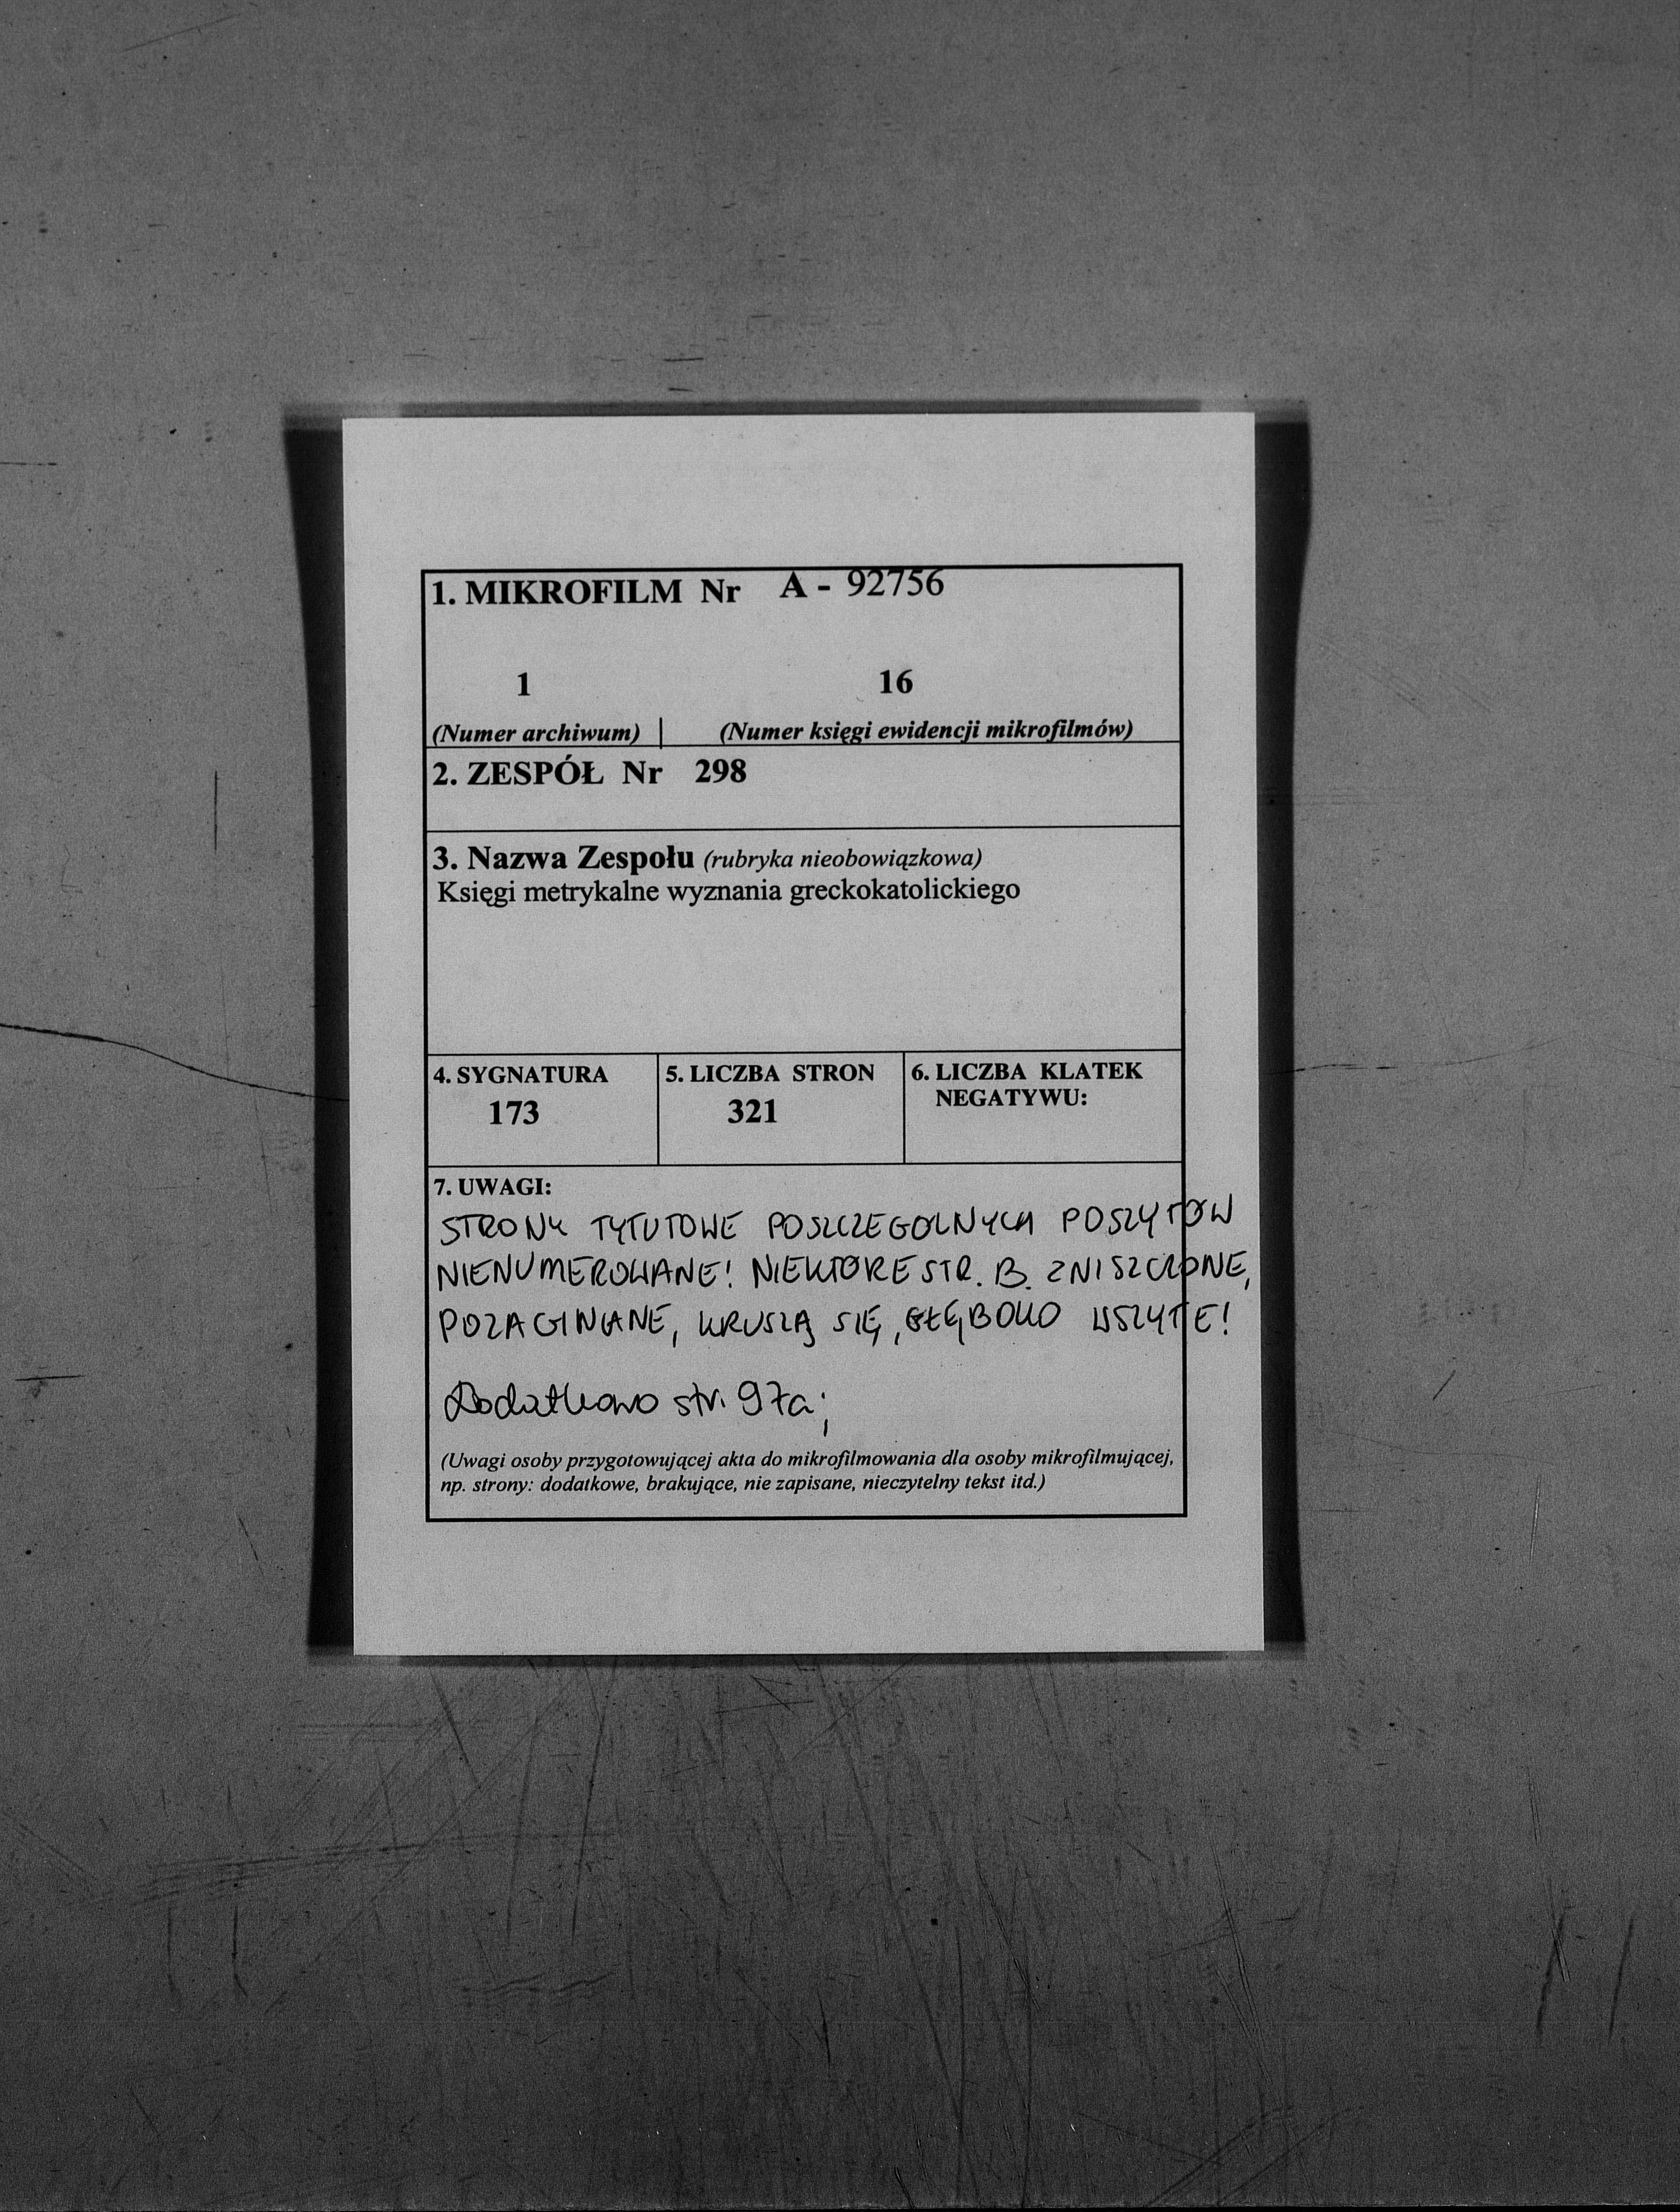 1. MIKROFILM Nr A - 92756
1 16
(Numer archiwum) | (Numer księgi ewidencji mikrofilmów)
2. ZESPÓŁ Nr 298
3. Nazwa Zespołu (rubryka nieobowiązkowa)
Księgi metrykalne wyznania greckokatolickiego
4. SYGNATURA
173
5. LICZBA STRON
321
6. LICZBA KLATEK
NEGATYWU:
7. UWAGI:
STRONY TYTUTOWE POSZCZEGOLNYCH POSZYTÓW
NIENUMEROWANE! NIEKTÓRE STR. B. ZNISZCZONE,
POZAGINANE, KRUSZĄ SIĘ, GŁĘBOKO WSZYTE!
Dodatkowo str. 97a;
(Uwagi osoby przygotowującej akta do mikrofilmowania dla osoby mikrofilmującej,
np. strony: dodatkowe, brakujące, nie zapisane, nieczytelny tekst itd.)